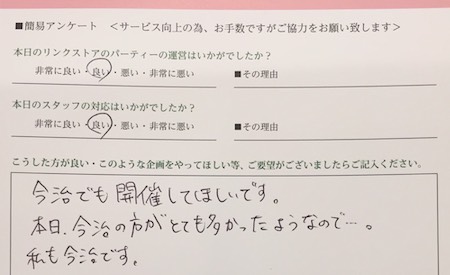 ■簡易アンケート ＜サービス向上の為、お手数ですがご協力をお願い致します＞
本日のリンクストアのパーティーの運営はいかがでしたか？
非常に良い・良い・悪い・非常に悪い ■その理由
本日のスタッフの対応はいかがでしたか？
非常に良い・良い・悪い・非常に悪い ■その理由
こうした方が良い・このような企画をやってほしい等、ご要望がございましたらご記入ください。
今治でも開催してほしいです。
本日、今治の方がとても多かったようなので…。
私も今治です。